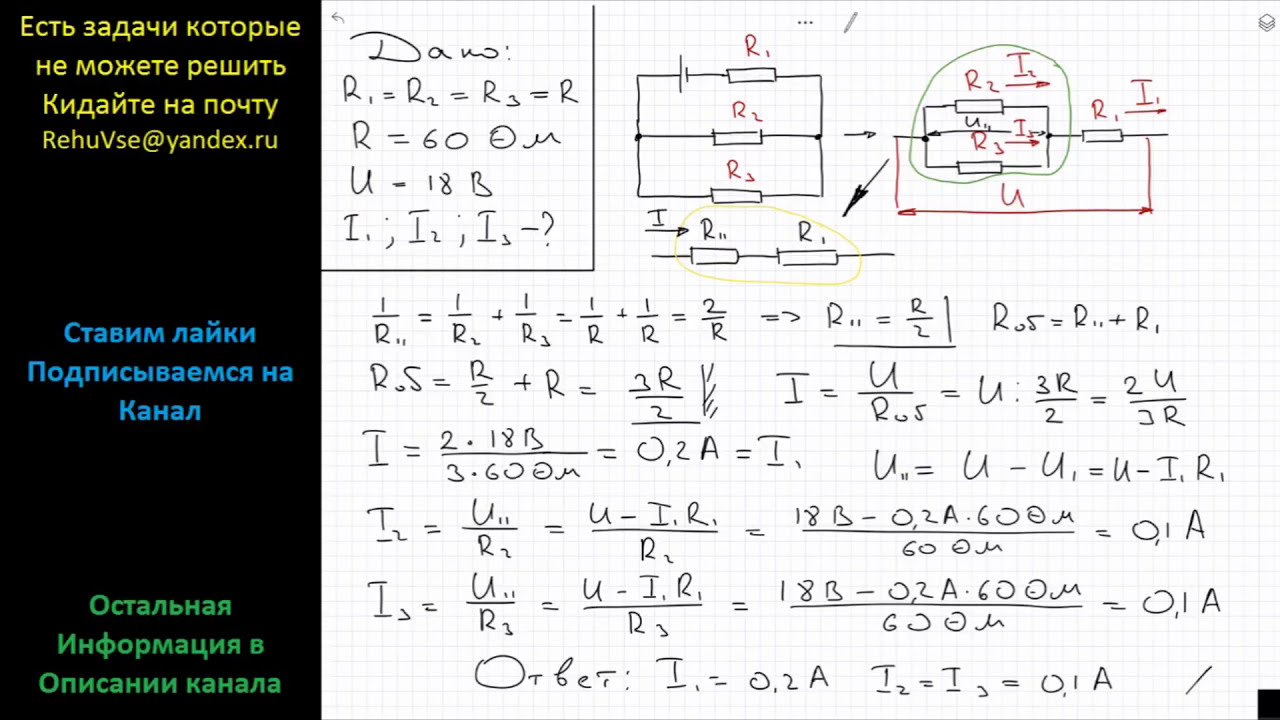 Есть задачи которые
не можете решить
Кидайте на почту
RehuVse@yandex.ru
Ставим лайки
Подписываемся на
Канал
Остальная
Информация в
Описании канала
Дано:
R₁ = R₂ = R₃ = R
R = 60 Ом
U = 18 В
I₁ ; I₂ ; I₃ –?
R₁
R₂
R₃
R₂ I₂
U₁₁
R₃ I₃
R₁ I₁
U
I R₁₁ R₁
1/R₁₁ = 1/R₂ + 1/R₃ = 1/R + 1/R = 2/R => R₁₁ = R/2 Rоб = R₁₁ + R₁
Rоб = R/2 + R = 3R/2 I = U/Rоб = U : 3R/2 = 2U/3R
I = 2·18В/3·60Ом = 0,2А = I₁ U₁₁ = U – U₁ = U – I₁R₁
I₂ = U₁₁/R₂ = U – I₁R₁/R₂ = 18В – 0,2А·60Ом/60Ом = 0,1А
I₃ = U₁₁/R₃ = U – I₁R₁/R₃ = 18В – 0,2А·60Ом/60Ом = 0,1А
Ответ: I₁ = 0,2А I₂ = I₃ = 0,1А